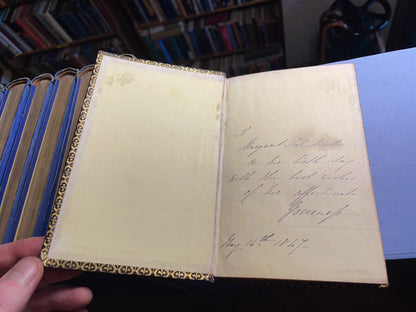 To
Margaret
on her birthday
with the best wishes
of her affectionate
May 14th 1847.